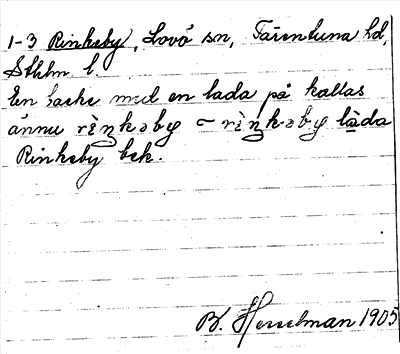 1-3 Rinkeby, Lovö sn, Färentuna hd,
Sthlm l.
En backe med en lada på kallas
ännu rìŋkəby ~ rìŋkəby låda
Rinkeby bek.
B. Hesselman 1905